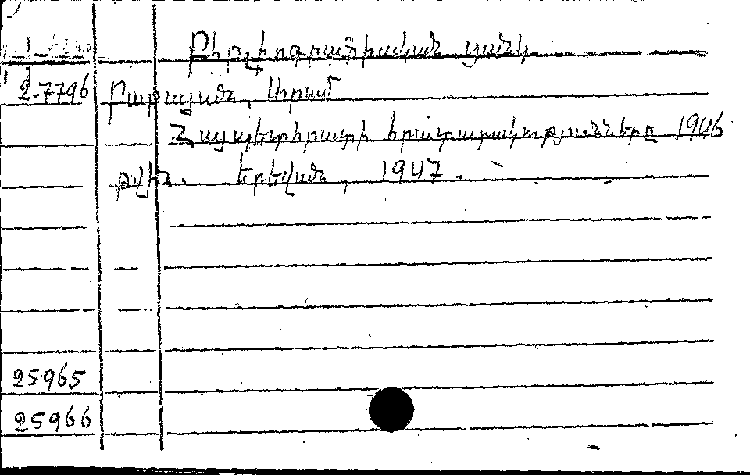 Բիբլիոգրաֆիական ցանկ
2-7796 Բաբայան, Արամ
Հայպետհրատի հրատարակությունները 1946
թվին. Երևան, 1947.
25965
25966